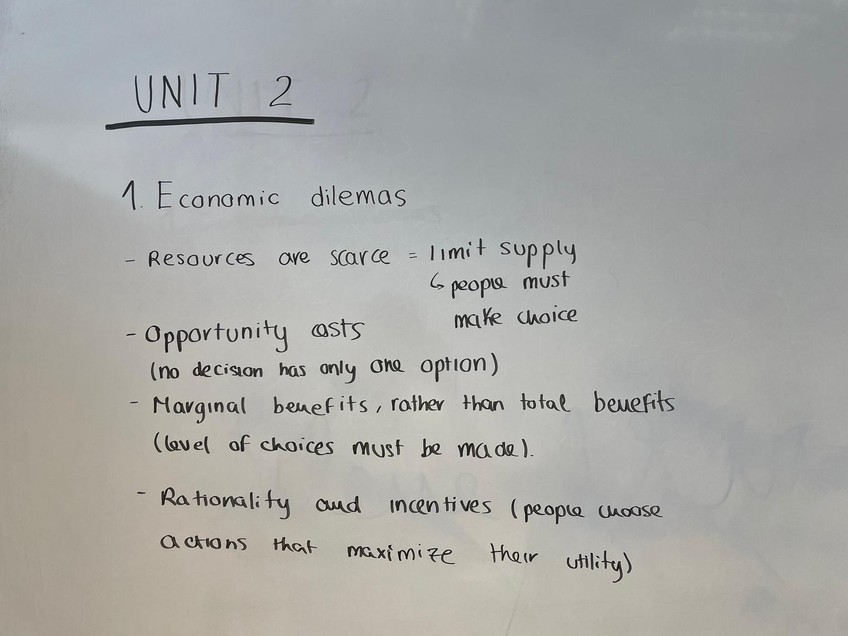 UNIT 2
1. Economic dilemas
- Resources are scarce = limit supply
↳ people must
make choice
- Opportunity costs
(no decision has only one option)
- Marginal benefits, rather than total benefits
(level of choices must be made).
- Rationality and incentives (people choose
actions that maximize their utility)